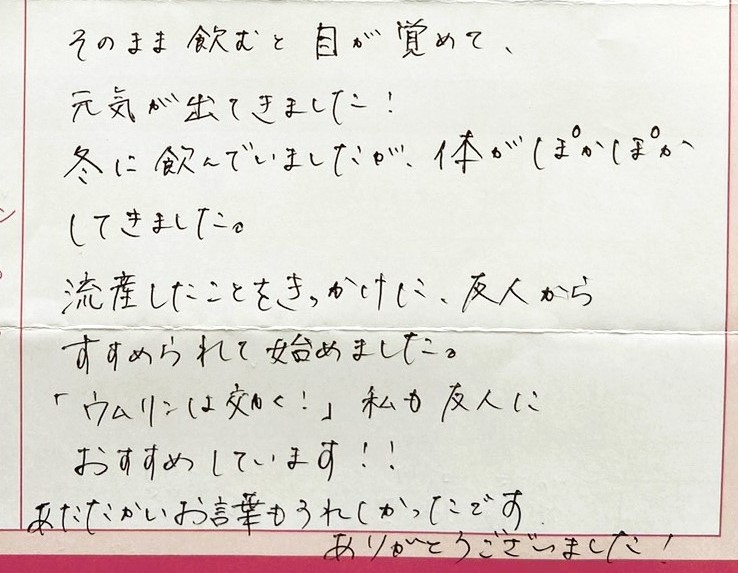 そのまま飲むと目が覚めて、
元気が出てきました！
冬に飲んでいましたが、体がぽかぽか
してきました。
流産したことをきっかけに、友人から
すすめられて始めました。
「ウムリンは効く！」私も友人に
おすすめしています！！
あたたかいお言葉もうれしかったです
ありがとうございました！